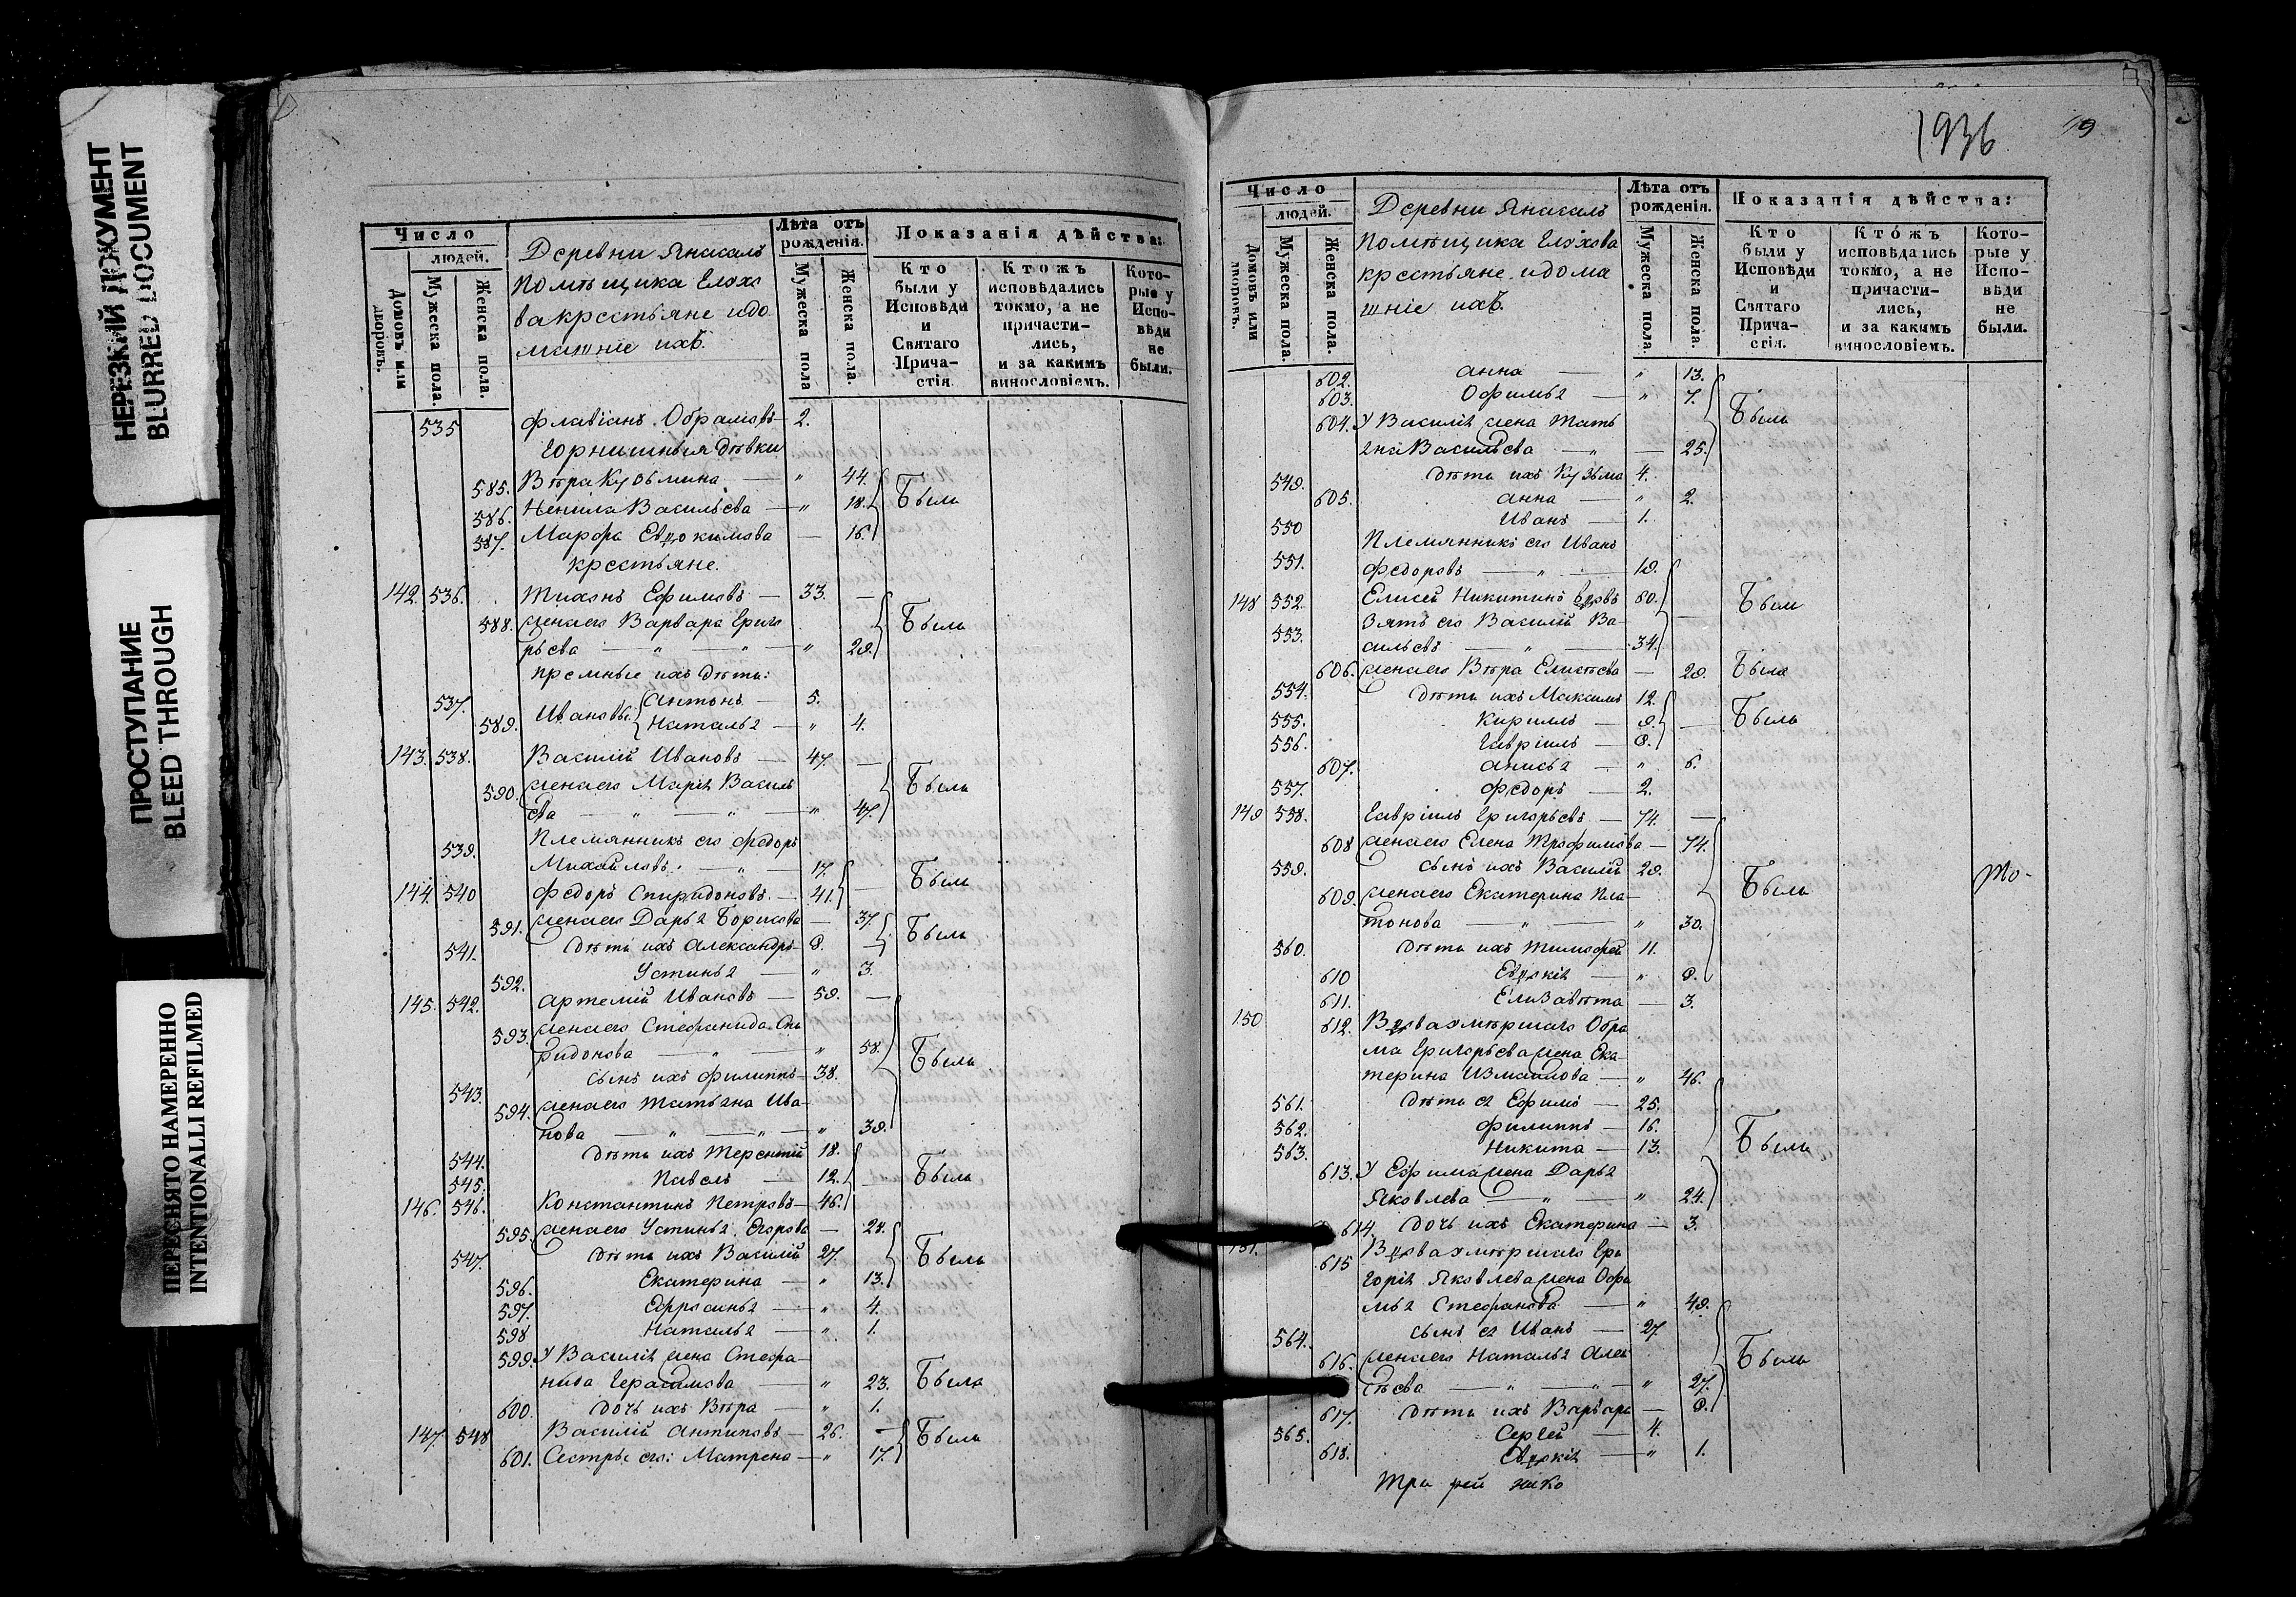 НЕРЕЗКИЙ ДОКУМЕНТ
BLURRED DOCUMENT
ПРОСТУПАНИЕ
BLEED THROUGH
ПЕРЕСНЯТО НАМЕРЕННО
INTENTIONALLI REFILMED
Число
людей.
Домовъ или дворовъ.
Мужеска пола.
Женска пола.
Деревни Янасалъ
Помѣщика Елохо
ва крестьяне и до
машніе ихъ.
Лѣта отъ рожденія.
Мужеска пола
Женска пола.
Показанія дѣйства:
Кто были у Исповѣди и Святаго Прича-стія.
Ктожъ исповѣдались токмо, а не причасти-лись, и за какимъ винословіемъ.
Кото-рые у Испо-вѣди не были.
535 Флавіанъ Обрамовъ 2.
Горнишныя дѣвки
585. Вѣра Кузьмина — „ 44.
586. Ненила Васильева — „ 18. Были
587. Марфа Евдокимова — 16.
крестьяне.
142. 536. Тихонъ Ефимовъ — 33. —
588. жена его Варвара Григо Были
рьева — „ — „ — „ 29.
прсмные ихъ дѣти:
537. Ивановы: Антонъ — 5.
589. Наталья — „ 4.
143. 538. Василій Ивановъ — 47. —
590. жена его Марія Василь Были
ева — „ — „ — „ 47.
539. Племянникъ его Федоръ
Михайловъ — „ — 17.
144. 540 Федоръ Спиридоновъ — 41. — Были
591. жена его Дарья Борисова — 37. Были
541. Дѣти ихъ Александръ — 8. —
592. Устинья — „ 3.
145. 542. Артемій Ивановъ — 59. —
593. жена его Стефанида Спи
ридонова — „ — „ 58. Были
543. сынъ ихъ Филиппъ — 38.
594. жена его Татьяна Ива-
нова — „ — „ — „ 39.
544. Дѣти ихъ Терентій 18.
545. Павелъ — 12. — Были
146. 546. Константинъ Петровъ — 46.
595. жена его Устинья Егорова — 24.
547. Дѣти ихъ Василій 27. Были
596. Екатерина — „ 13.
597. Ефросинья — „ 4.
598 Наталья — „ 1.
599. У Василія жена Стефа-
нида Герасимова — „ 23. Была
600. дочь ихъ Вѣра — „ 1.
147. 548 Василій Антиповъ — 26. — Были
601. Сестры его: Матрена — „ 17.
1936
119
Число
людей.
Домовъ или дворовъ.
Мужеска пола.
Женска пола.
Деревни Янасалъ
Помѣщика Елохова
крестьяне и дома
шніе ихъ.
Лѣта отъ рожденія.
Мужеска пола.
Женска пола.
Показанія дѣйства:
Кто были у Исповѣди и Святаго Прича-стія.
Кто́жъ исповѣдались токмо, а не причасти-лись, и за какимъ винословіемъ.
Кото-рые у Испо-вѣди не были.
602. Анна — „ 13.
603. Офимья — „ 7. Были
604. У Василія жена Тать
яна Васильева — „ — 25.
549. Дѣти ихъ Кузьма 4.
605. Анна — „ 2.
550 Иванъ — 1.
551. Племянникъ его Иванъ
Федоровъ — „ — 19.
148 552. Елисей Никитинъ вдовъ 60. — Были
553. Зять его Василій Ва-
сильевъ — „ — 34.
606. жена его Вѣра Елисѣева — 29. Была
554. Дѣти ихъ Максимъ 12.
555. Кириллъ — 9. — Были
556. Гавріилъ — 8.
607. Анисья — „ 6.
557. Федоръ — 2.
149 558. Гавріилъ Григорьевъ — 74. —
608 жена его Елена Трофимова — 74.
559. сынъ ихъ Василій 29.
609. жена его Екатерина Пла- Были То-
тонова — „ — „ 30.
560. Дѣти ихъ Тимофей 11.
610 Евдокія — „ 8.
611. Елизавѣта — 3.
150 612. Вдова умѣршаго Обра
ма Григорьева жена Ека-
терина Измаилова — „ 46.
561. Дѣти ея Ефимъ — 25.
562. Филиппъ — 16. Были
563. Никита — 13.
613. У Ефима жена Дарья
Яковлева — „ — „ 24.
614. дочь ихъ Екатерина — 3.
151. 615 Вдова умѣршаго Гри
горія Яковлева жена Офи
мья Стефанова — „ 49.
564. сынъ ея Иванъ — 27
616. жена его Наталья Алек Были
сѣева — „ — „ — „ 27.
617. Дѣти ихъ Варвара — 8.
565. Сергей — 4.
618. Евдокія — „ 1.